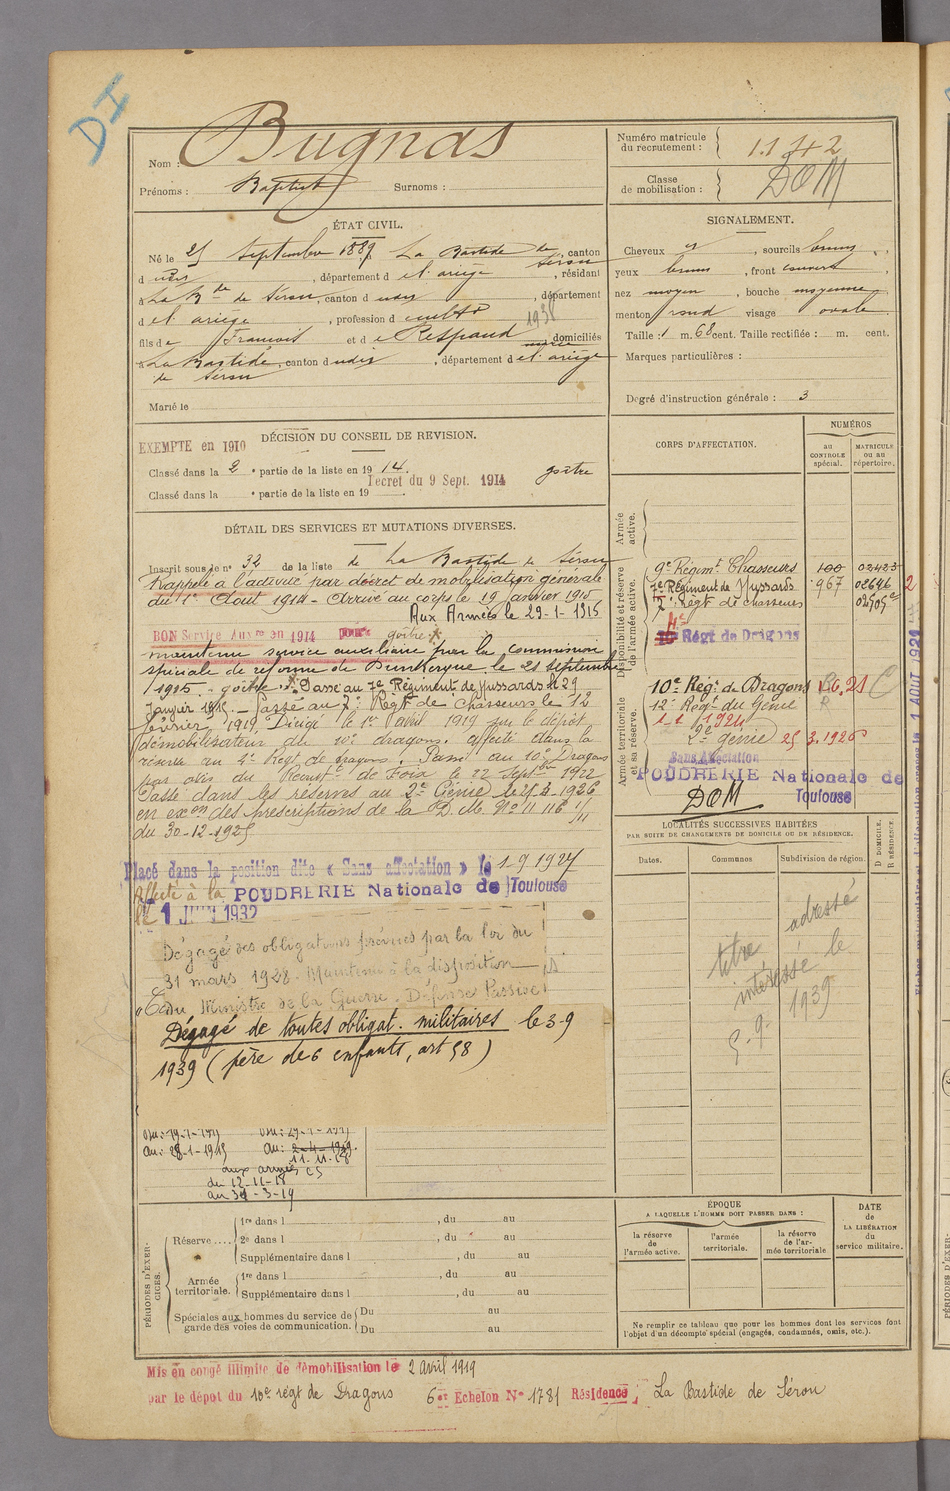 DI
Nom : Bugnas
Prénoms : Baptiste Surnoms :
Numéro matricule du recrutement : 1142
Classe de mobilisation : DOM
ÉTAT CIVIL.
Né le 25 septembre 1889, La Bastide de Sérou, canton
d udit, département d el ariège, résidant
à La Bde de Sérou, canton d udit, département
d el ariège, profession d cultr
1938
fils de François et de Respaud domiciliés
à La Bastide de Sérou, canton d udit, département d el ariège
Marié le
SIGNALEMENT.
Cheveux , sourcils bruns
yeux bruns, front couvert
nez moyen, bouche moyenne
menton rond visage ovale
Taille : 1 m. 68 cent. Taille rectifiée : m. cent.
Marques particulières :
Degré d'instruction générale : 3
DÉCISION DU CONSEIL DE REVISION.
EXEMPTE en 1910
Classé dans la 2 e partie de la liste en 1914. goître
Decret du 9 Sept. 1914
Classé dans la e partie de la liste en 19
CORPS D'AFFECTATION.
NUMÉROS
au CONTROLE spécial.
MATRICULE ou au répertoire.
Armée active.
Disponibilité et réserve de l'armée active.
9e Régimt Chasseurs 100 03433
7e Régiment de Hussards 967 02646 2
2e Régt de chasseurs 02505
4e
10 Régt de Dragons
Armée territoriale et sa réserve.
10e Régt de Dragons R 6.21 C
12e Régt du Génie R
1-1 1924
2e génie 25 3.1926
Sans Affectation
POUDRERIE Nationale de
Toulouse
DOM
DÉTAIL DES SERVICES ET MUTATIONS DIVERSES.
Inscrit sous le no 32 de la liste de La Bastide de Sérou
Rappelé à l'activité par décret de mobilisation générale
du 1er Août 1914 - Arrivé au corps le 19 janvier 1915
Aux Armées le 29-1-1915
BON Service Auxre en 1914 pour goître *
maintenu service auxiliaire par la commission
spéciale de réforme de Dunkerque le 21 septembre
1915. - goître. * Passé au 7e Régiment de Hussards le 29
Janvier 1915. - Passé au 2e Regt de Chasseurs le 12
février 1919. Dirigé le 1er avril 1919 sur le dépôt
démobilisateur du 10e dragons. affecté dans la
réserve au 4e Régt de Dragons. Passé au 10e Dragons
par avis du Recrutt de Foix le 22 Septbre 1922
Passé dans les réserves au 2e Génie le 25-3-1926
en exon des prescriptions de la D.M. No 11.116 1/11
du 30-12-1925
Placé dans la position dite « Sans affectation » le 1-9 1927
Affecté à la POUDRERIE Nationale de Toulouse
le 1 JUIN 1932
Dégagé des obligations prévues par la loi du
31 mars 1928. Maintenu à la disposition
du Ministre de la Guerre. Défense Passive
Dégagé de toutes obligat. militaires le 3-9
1939 (père de 6 enfants, art 58)
Du : 19-1-1915 Du : 29-1-1915
Au : 28-1-1915 Au : 2-4-1919.
11.11.18
aux armées CS
du 12-11-18
au 31-3-19
LOCALITÉS SUCCESSIVES HABITÉES
PAR SUITE DE CHANGEMENTS DE DOMICILE OU DE RÉSIDENCE.
Dates. Communes Subdivision de région.
D DOMICILE.
R RÉSIDENCE.
titre adressé
intéressé le
5.9. 1939
PÉRIODES D'EXERCICES.
Réserve .... 1re dans l , du au
2e dans l , du au
Supplémentaire dans l , du au
Armée territoriale. 1re dans l , du au
Supplémentaire dans l , du au
Spéciales aux hommes du service de garde des voies de communication. Du au
Du au
ÉPOQUE
A LAQUELLE L'HOMME DOIT PASSER DANS :
la réserve de l'armée active.
l'armée territoriale.
la réserve de l'armée territoriale
DATE de LA LIBÉRATION du service militaire.
Ne remplir ce tableau que pour les hommes dont les services font
l'objet d'un décompte spécial (engagés, condamnés, omis, etc.).
Mis en congé illimité de démobilisation le 2 avril 1919
par le dépôt du 10e régt de Dragons 6e Echelon No 1781 Résidence : La Bastide de Sérou